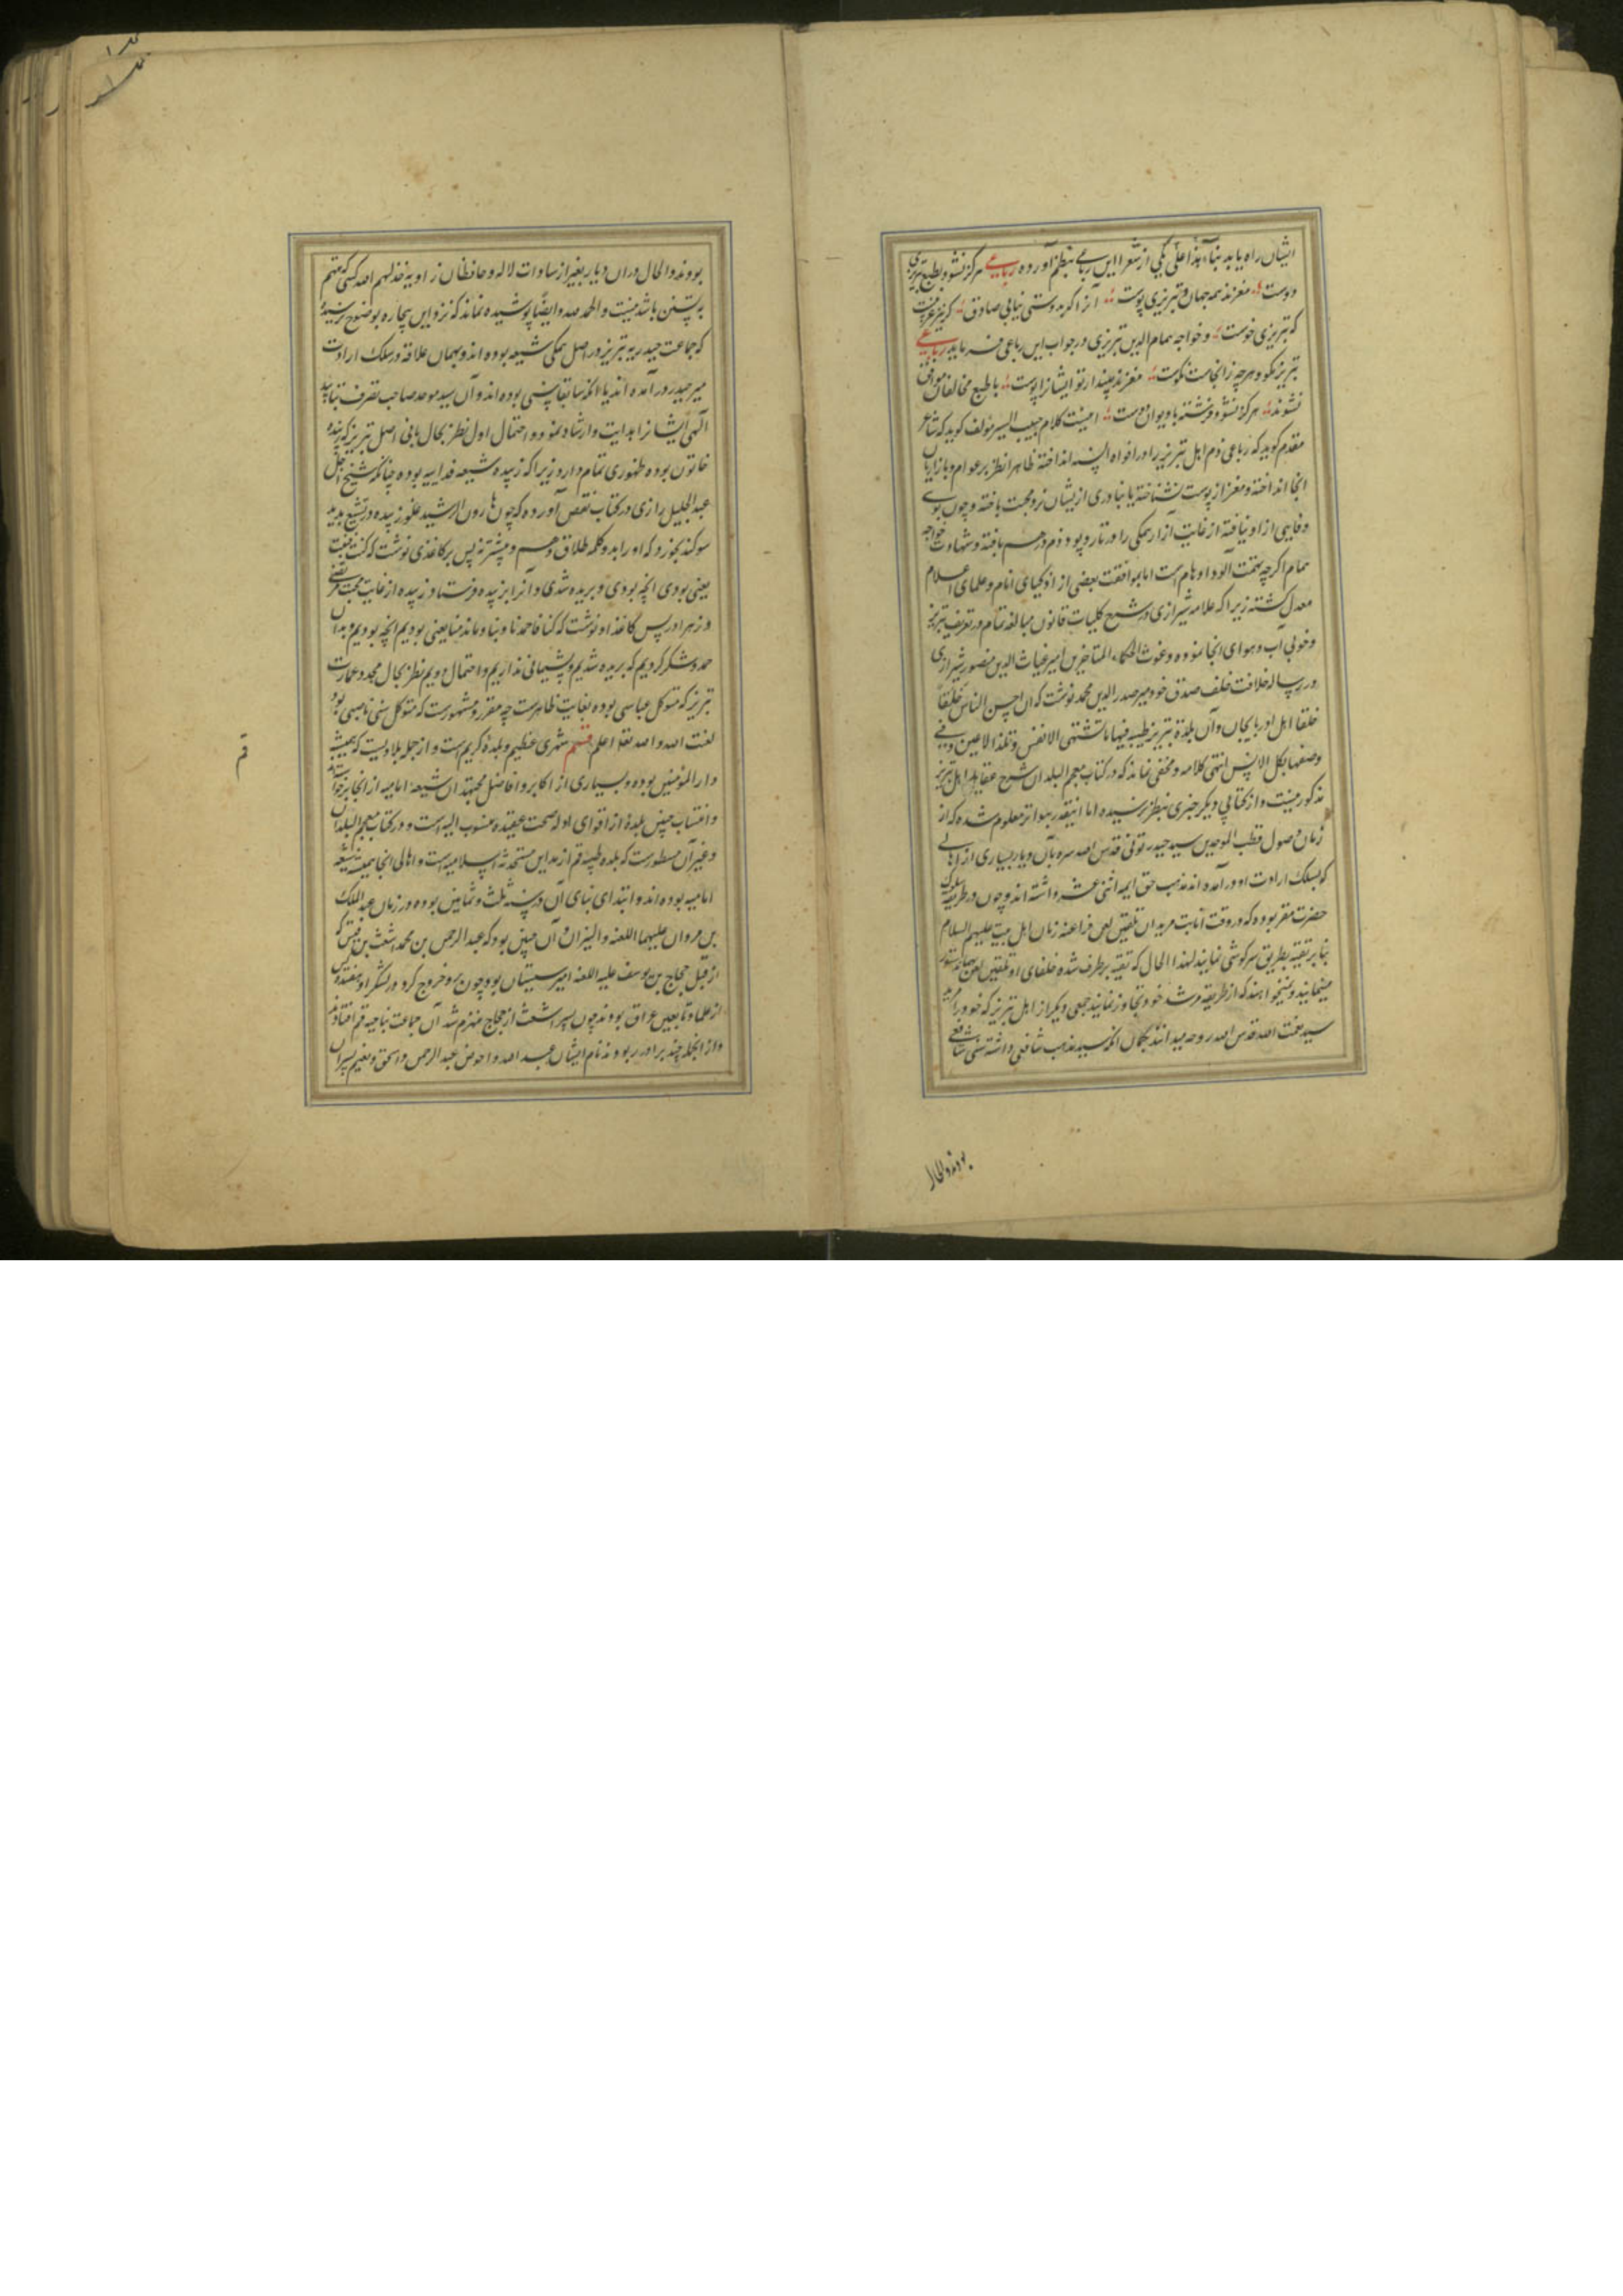 ایشان راه یابد بناء هذا علی یکی از شعرا این رباعی بنظم آورده رباعی هرگز نشود بطبع تبریزی
دوست مغزند همه جهان و تبریزی پوست آنرا که بدوستی نیابی صادق گر نیز غریبست
که تبریزی خوست و خواجه همام الدین تبریزی در جواب این رباعی فرماید رباعی
تبریز نکو و هرچه زانجاست نکوست مغزند مپندار تو ایشانرا پوست با طبع مخالفان موافق
نشوند هرگز نشود فرشته با دیوان دوست اینست کلام حبیب السیر مؤلف گوید که شاعر
مقدم گوید که رباعی ذم اهل تبریز را در افواه السنه انداخته ظاهرا نظر بر عوام و بازاریان
آنجا انداخته و مغز از پوست نشناخته یا بنادری از ایشان نرد محبت باخته و چون بوی
وفایی ازو نیافته از غایت آزار همگی را در تار و پود ذم درهم بافته و شهادت خواجه
همام اگرچه تهمت آلود اوهام است اما بموافقت بعضی از اذکیای انام و علمای اعلام
معدل گشته زیرا که علامه شیرازی در شرح کلیات قانون مبالغه تمام در تعریف تبریز
و خوبی آب و هوای آنجا نموده و غوث الحکماء المتاخرین امیر غیاث الدین منصور شیرازی
در رساله خلافت خلف صدق خود میر صدر الدین محمد نوشت که ان احسن الناس خلقاً
خلقا اهل اذربایجان و ان بلدة تبریز طیبه فیها ما تشتهی الانفس و تلذ الاعین و فی
وصفها یکل الالسن انتهی کلامه و مخفی نماند که در کتاب معجم البلدان شرح عقاید اهل تبریز
مذکور نیست و از کتابی دیگر خبری بنظر نرسیده اما اینقدر بتواتر معلوم شده که از
زمان وصول قطب الموحدین سید حیدر تونی قدس الله سره بآن دیار بسیاری از اهالی
که بسلک ارادت او درآمده اند مذهب حق ایمه اثنی عشر داشته اند و چون در طریقه سلوک
حضرت مقرر بوده که در وقت انابت مریدان تلقین لعن فراعنه زمان اهل بیت علیهم السلام
بنابر تقیه بطریق سرگوشی نمایند لهذا الحال که تقیه برطرف شده خلفای او تلقین لعن بهمان دستور
مینمایند و نمیخواهند که از طریقه مرشد خود تجاوز نمایند جمعی دیگر از اهل تبریز که خود را مرید
سید نعمت الله قدس الله روحه میدانند بگمان آنکه سید مذهب شافعی داشته سنی شافعی
بودند و الحال
بودند و الحال در ان دیار بغیر از سادات لاله و حافظان زاویه خذلهم الله کسی که متهم
به تسنن باشد نیست و الحمد لله و ایضا پوشیده نماند که نزد این بیچاره بوضوح نرسیده
که جماعت حیدریه تبریز در اصل همگی شیعه بوده اند و بهمان علاقه در سلک ارادت
میر حیدر درآمده اند یا آنکه سابقا سنی بوده اند و آن سید موحد صاحب تصرف بتایید
الهی ایشانرا هدایت و ارشاد نموده و احتمال اول نظر بحال بانی اصل تبریز که زبیده
خاتون بوده ظهوری تمام دارد زیرا که زبیده شیعه فداییه بوده چنانکه شیخ اجل
عبد الجلیل رازی در کتاب نقض آورده که چون هارون الرشید غلو زبیده در تشیع بدید
سوگند بخورد که او را بدو کلمه طلاق دهم و بیشتر نه پس بر کاغذی نوشت که کنت فبنت
یعنی بودی آنچه بودی و بریده شدی و آنرا بزبیده فرستاد زبیده از غایت محبت مرتضی
و زهرا در پس کاغذ او نوشت که کنا فما حمدنا و بنا و ما ندمنا یعنی بودیم آنچه بودیم و بدان
حمد و شکر نکردیم که بریده شدیم و پشیمانی نداریم و احتمال دویم نظر بحال مجدد عمارت
تبریز که متوکل عباسی بوده بغایت ظاهرست چه مقرر و مشهورست که متوکل سنی ناصبی بود
لعنت الله و الله تعالی اعلم قسم شهری عظیم و بلدهٔ کریم است و از جمله بلادیست که همیشه
دار المؤمنین بوده و بسیاری از اکابر و افاضل مجتهدان شیعه امامیه از آنجا برخاسته اند
و انتساب چنین بلده از اقوای ادله صحت عقیده منسوب الیه است و در کتاب معجم البلدان
و غیر آن مسطورست که بلده طیبه قم از مداین مستحدثه اسلامیه است و اهالی آنجا همیشه شیعه
امامیه بوده اند و ابتدای بنای آن در سنه ثلث و ثمانین بوده در زمان عبد الملک
بن مروان علیهما اللعنه و النیران و آن چنین بود که عبد الرحمن بن محمد اشعث بن قیس که
از قبل حجاج بن یوسف علیه اللعنه امیر سیستان بود چون برو خروج کرد در لشکر او هفده کس
از علما و تابعین عراق بودند چون پسر اشعث از حجاج منهزم شد آن جماعت بناحیه قم افتادند
و از آنجمله چند برادر بودند نام ایشان عبد الله و احوص عبد الرحمن و اسحق و نعیم پسران
قم